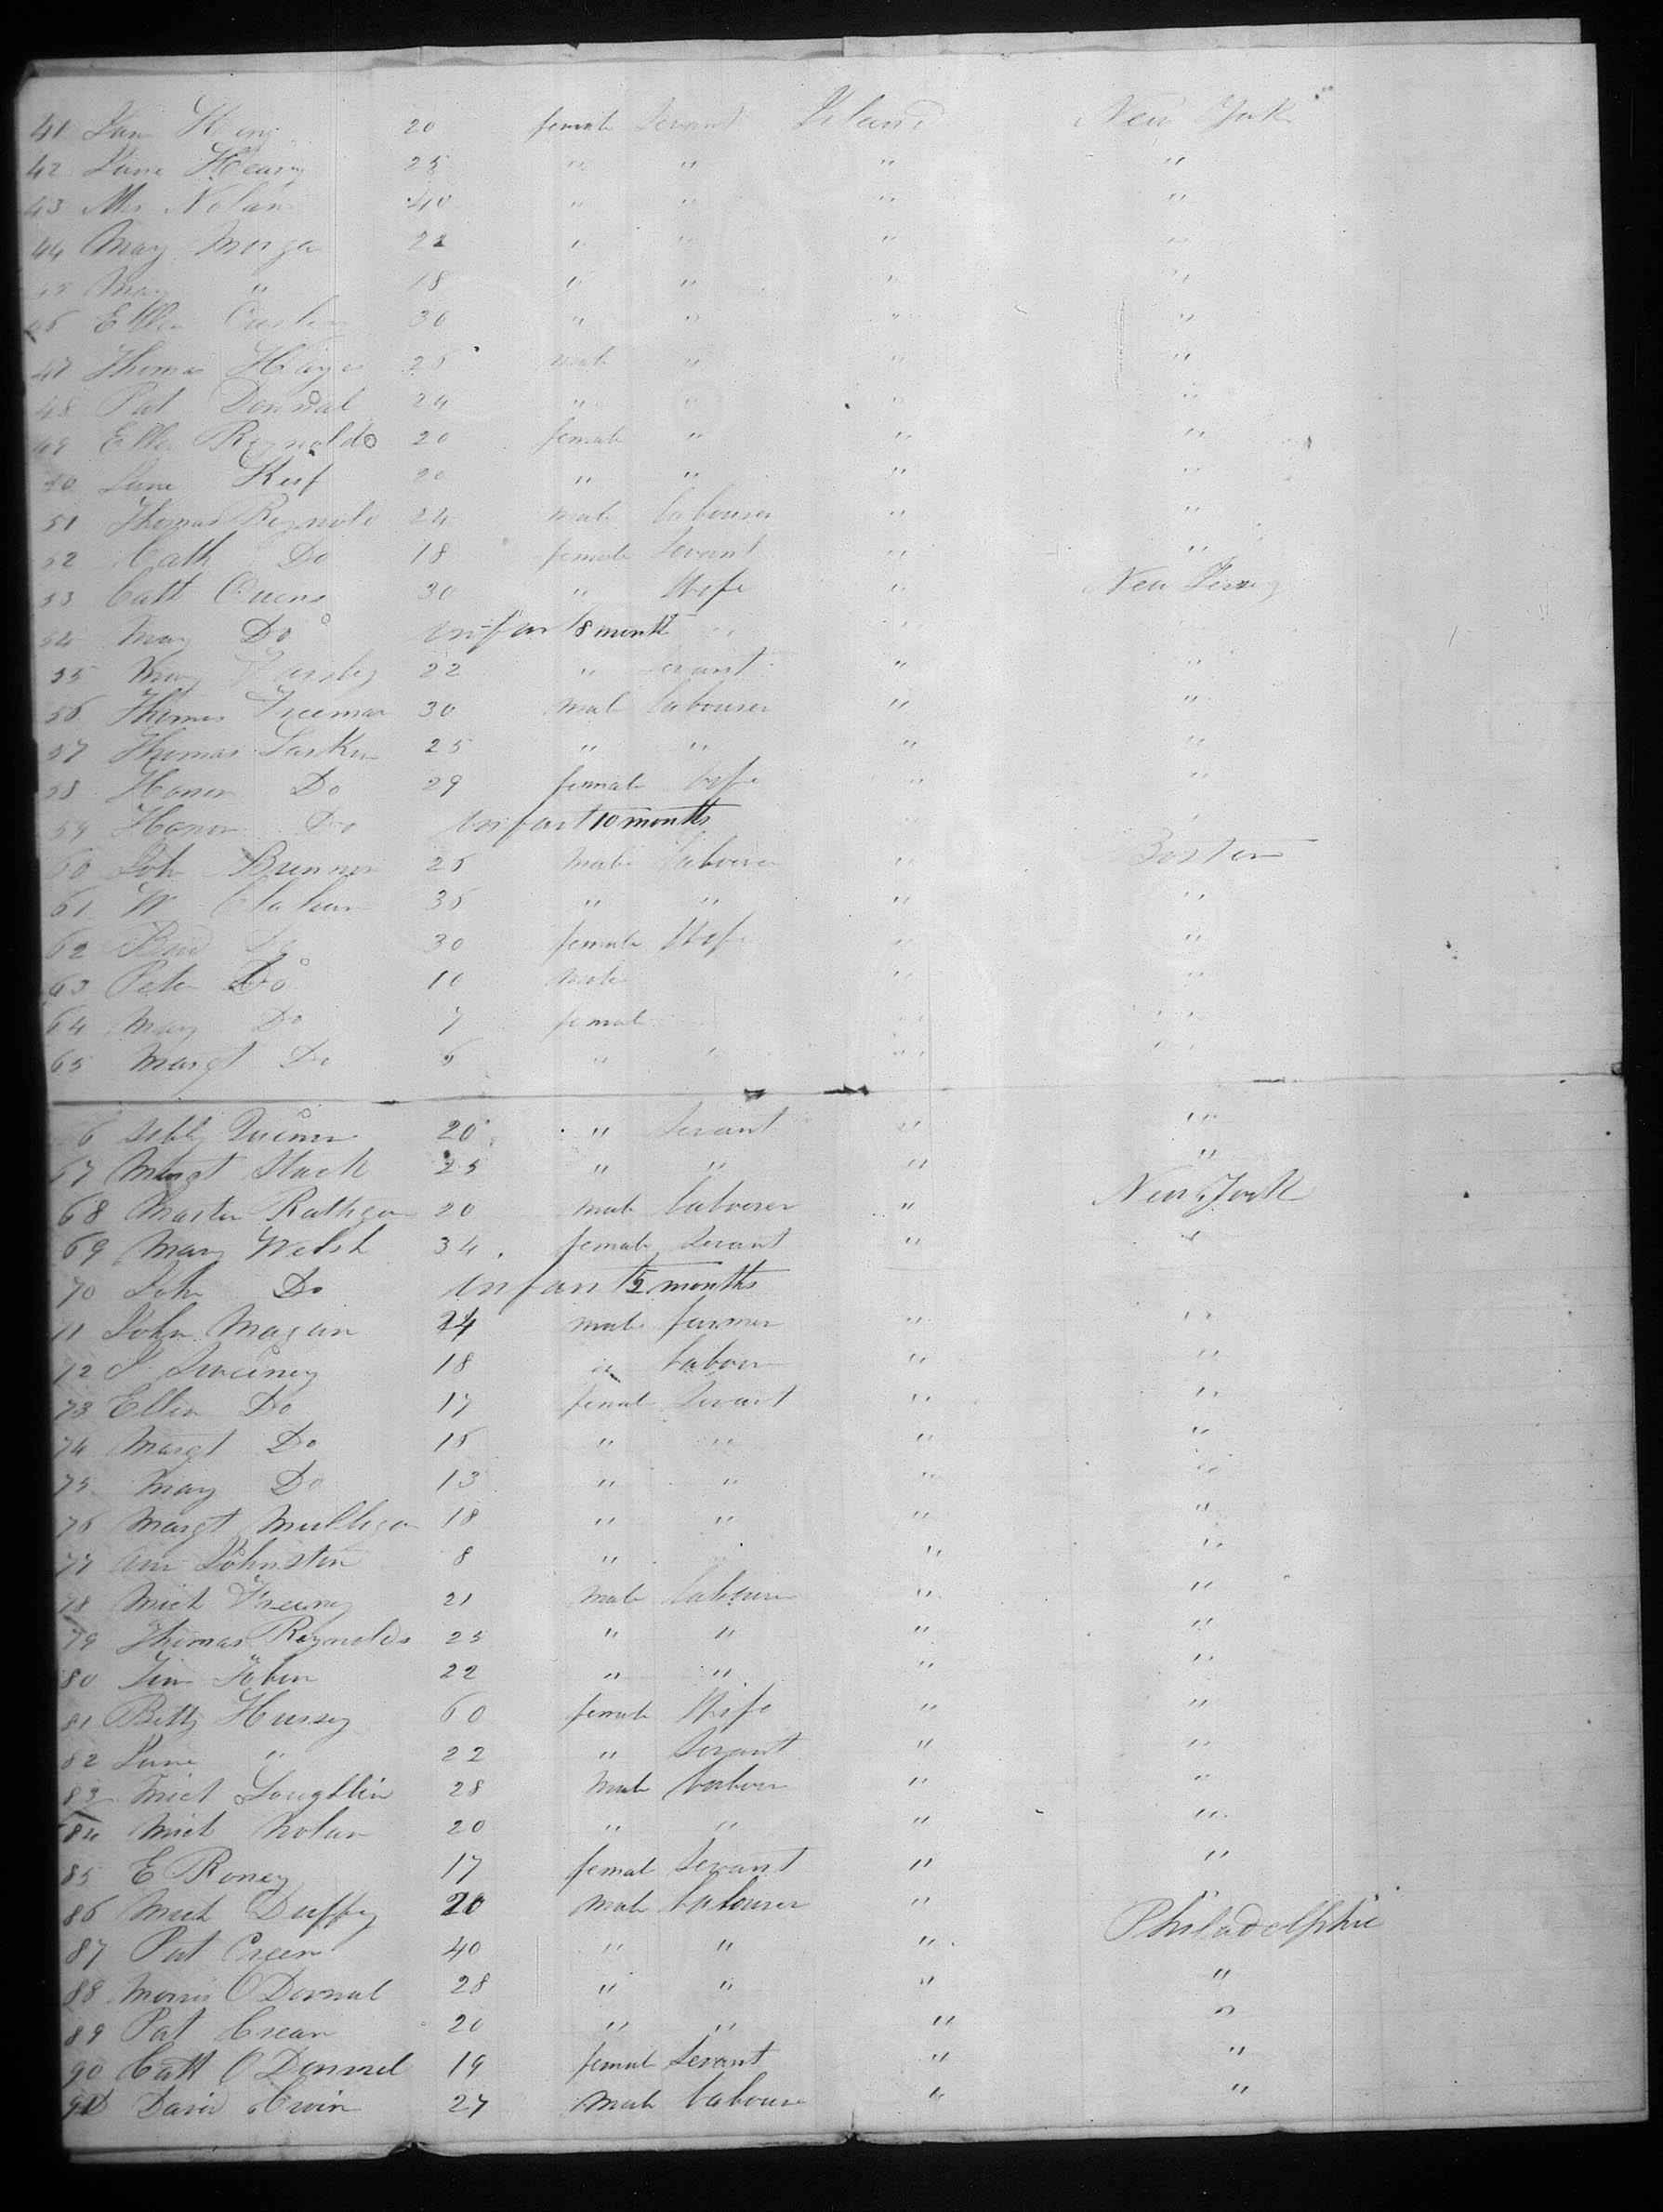 41 Jane King 20 female Servant Ireland New York
42 Jane Heany 25 " " " "
43 Mrs Nolan 40 " " " "
44 Mary Morga 22 " " " "
45 Mary " 18 " " " "
46 Ellen 30 " " " "
47 Thomas Hayes 25 male " " "
48 Pat Donnal 24 " " " "
49 Ellen Reynolds 20 female " " "
50 Jane Keef 20 " " " "
51 Thomas Reynold 24 male labourer " "
52 Cath Do 18 female Servant " "
53 Catt Owens 30 " Wife " New Jersey
54 Mary Do infant 8 month " "
55 Mary 22 " Servant " "
56 Thomas Freeman 30 mal labourer " "
57 Thomas Larkin 25 " " " "
58 Honor Do 29 female wife " "
59 Honor Do infant 10 months " "
60 John Brennan 26 male labourer " Boston
61 W 35 " " " "
62 Do 30 female Wife " "
63 Peter Do 10 male " "
64 Mary Do 7 femal " "
65 Margt Do 6 " " " "
6 20 " Servant " "
67 Margt Stack 25 " " " "
68 Martin Rathgan 20 male labourer " New York
69 Mary Welsh 34 female Servant " "
70 John Do infant 2 months
71 John Magan 24 male farmer " "
72 J Sweeney 18 " labour " "
73 Ellen Do 17 femal Servant " "
74 Margt Do 15 " " " "
75 Mary Do 13 " " " "
76 Margt Mulligan 18 " " " "
77 Ann Johnston 8 " " " "
78 Mich 21 male labourer " "
79 Thomas Reynolds 25 " " " "
80 Jim Tobin 22 " " " "
81 Betty Hussey 60 female Wife " "
82 Jane " 22 " Servant " "
83 Mich Loughlin 28 male labour " "
84 Mich Nolan 20 " " " "
85 E Roney 17 femal Servant " "
86 Mich Duffy 20 male labourer " "
87 Pat Creen 40 " " " Philadelphia
88 Morris O Donnal 28 " " " "
89 Pat Crean 20 " " " "
90 Catt O Donnel 19 femal Servant " "
91 David 27 male laboure " "